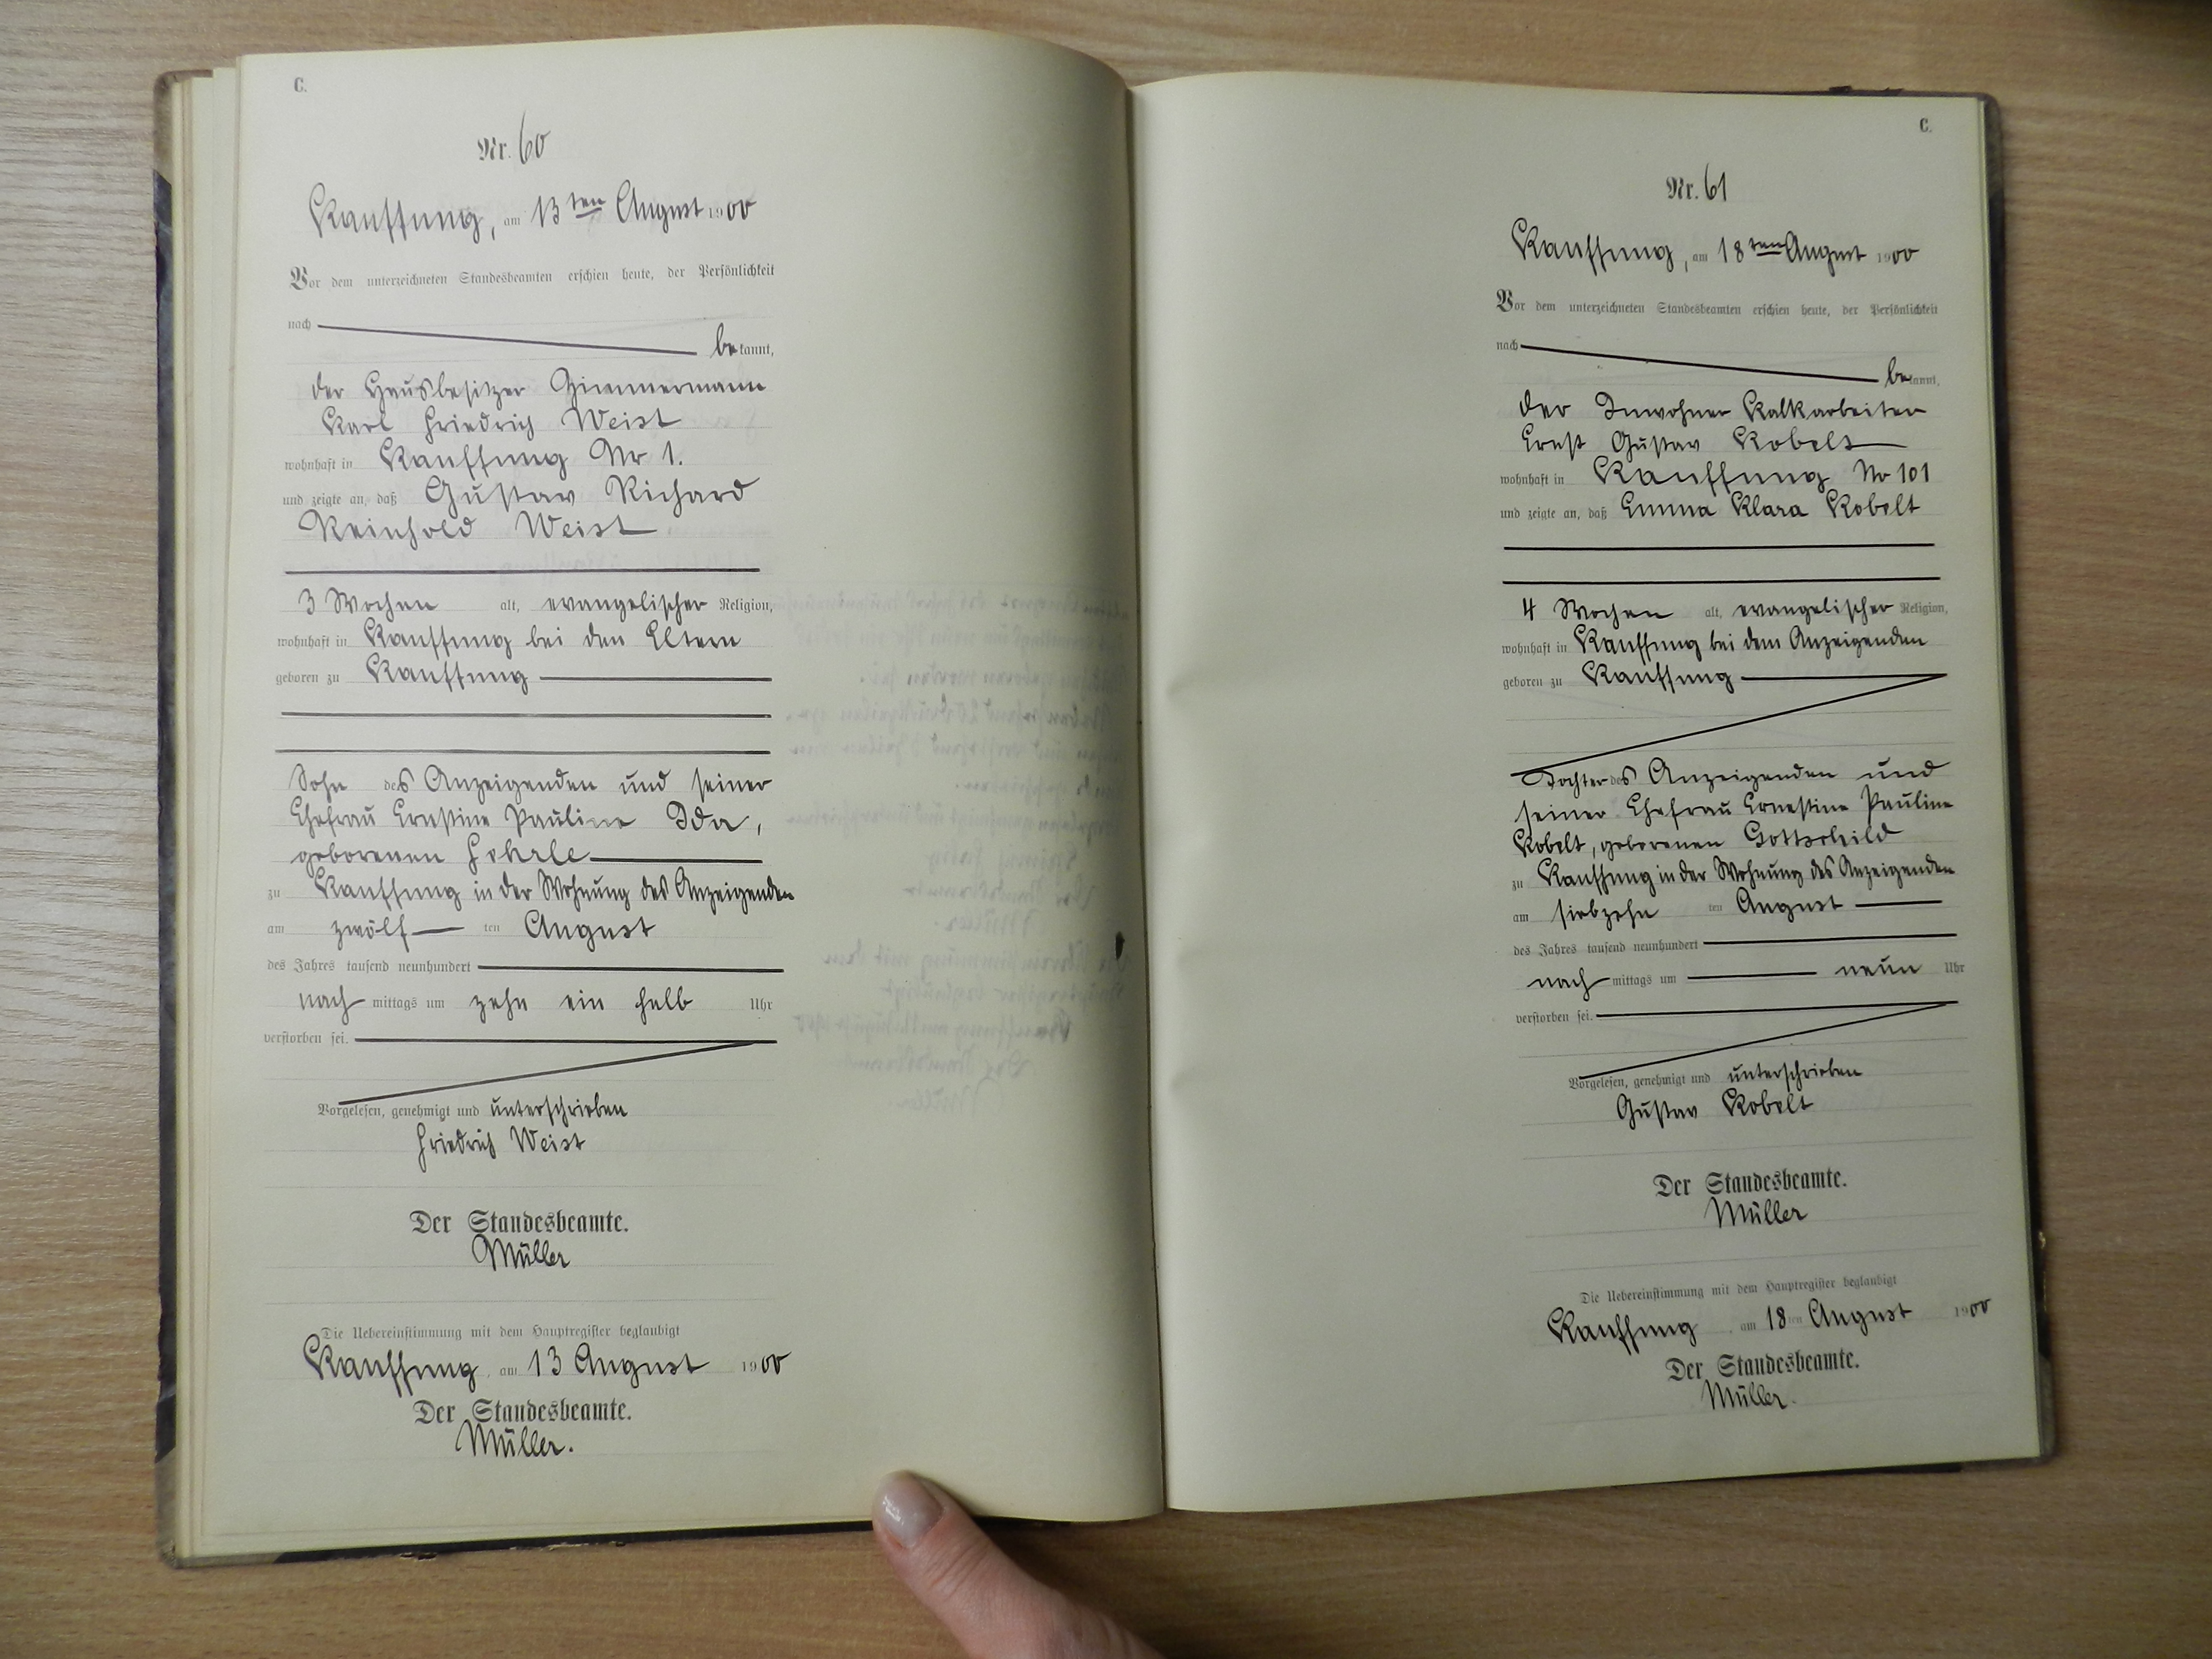 C.
Nr. 60
Kauffung, am 13ten August 1900
Vor dem unterzeichneten Standesbeamten erschien heute, der Persönlichkeit
nach
bekannt,
der Hausbesitzer Zimmermann
Karl Friedrich Weist
wohnhaft in Kauffung Nr 1.
und zeigte an, daß Gustav Richard
Reinhold Weist
3 Wochen alt, evangelischer Religion,
wohnhaft in Kauffung bei den Eltern
geboren zu Kauffung
Sohn des Anzeigenden und seiner
Ehefrau Ernstine Pauline Ida,
geborenen
zu Kauffung in der Wohnung des Anzeigenden
am zwölf ten August
des Jahres tausend neunhundert
nach mittags um zehn ein halb Uhr
verstorben sei.
Vorgelesen, genehmigt und unterschrieben
Friedrich Weist
Der Standesbeamte.
Müller
Die Uebereinstimmung mit dem Hauptregister beglaubigt
Kauffung, am 13 August 1900
Der Standesbeamte.
Müller.
C.
Nr. 61
Kauffung, am 18ten August 1900
Vor dem unterzeichneten Standesbeamten erschien heute, der Persönlichkeit
nach
bekannt,
der Inwohner Kalkarbeiter
Ernst Gustav Kobelt
wohnhaft in Kauffung Nr 101
und zeigte an, daß Emma Klara Kobelt
4 Wochen alt, evangelischer Religion,
wohnhaft in Kauffung bei dem Anzeigenden
geboren zu Kauffung
Tochter des Anzeigenden und
seiner Ehefrau Ernestine Pauline
Kobelt, geborenen Gottschild
zu Kauffung in der Wohnung des Anzeigenden
am siebzehn ten August
des Jahres tausend neunhundert
nach mittags um neun Uhr
verstorben sei.
Vorgelesen, genehmigt und unterschrieben
Gustav Kobelt
Der Standesbeamte.
Müller
Die Uebereinstimmung mit dem Hauptregister beglaubigt
Kauffung am 18ten August 1900
Der Standesbeamte.
Müller.